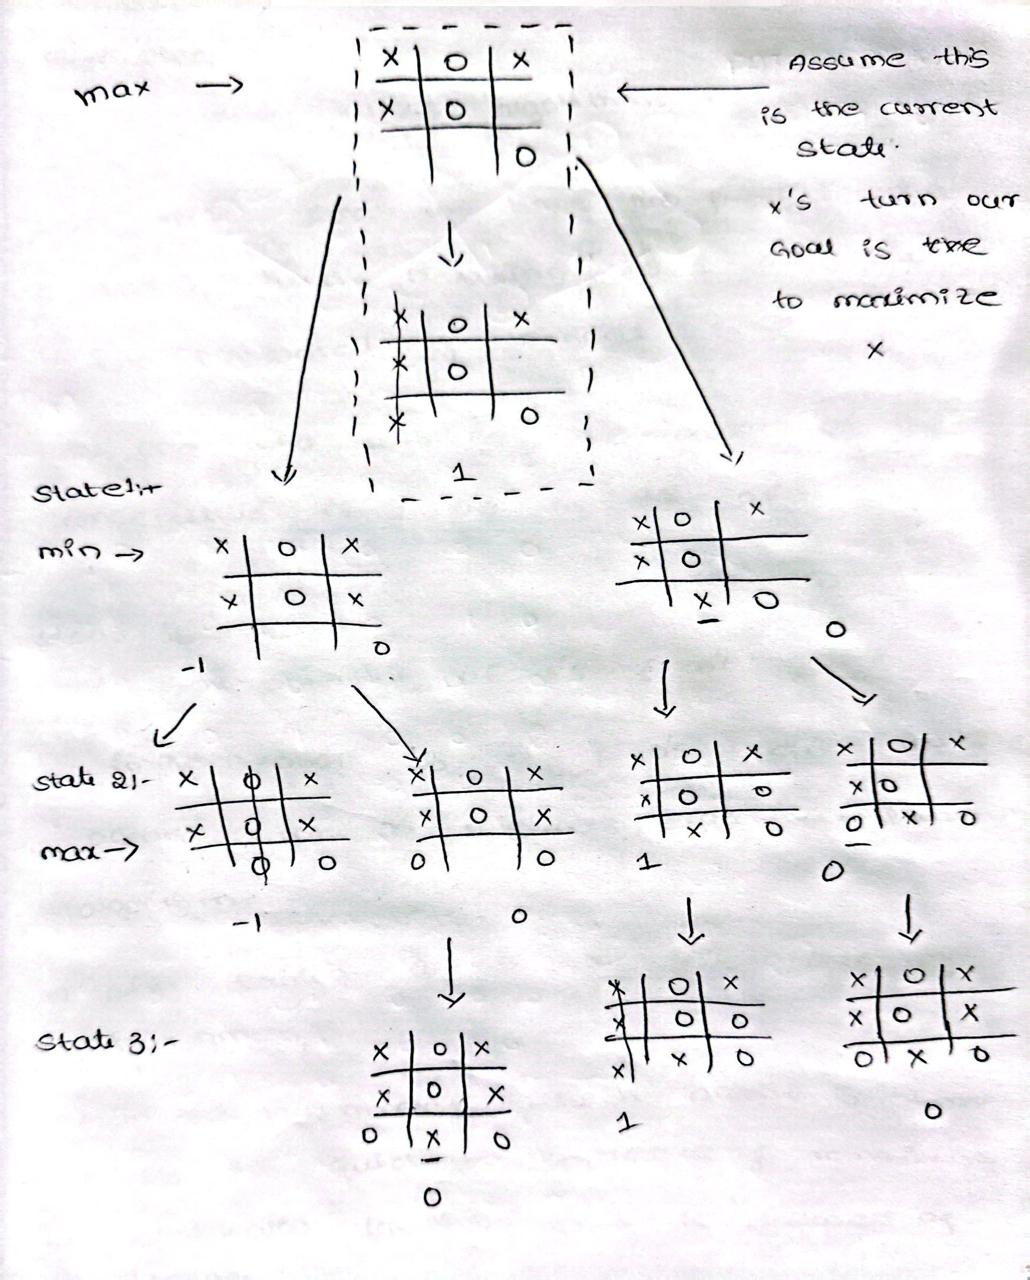 max →
X O X
X O
O
← Assume this
is the current
state.
x's turn our
Goal is
to maximize
x
X O X
X O
X O
1
State 1:-
min →
X O X
X O X
O
-1
X O X
X O
X O
O
State 2:-
max →
X O X
X O X
O O
-1
X O X
X O X
O O
O
X O X
X O O
X O
1
X O X
X O
O X O
O
State 3:-
X O X
X O X
O X O
O
X O X
X O O
X X O
1
X O X
X O X
O X O
O